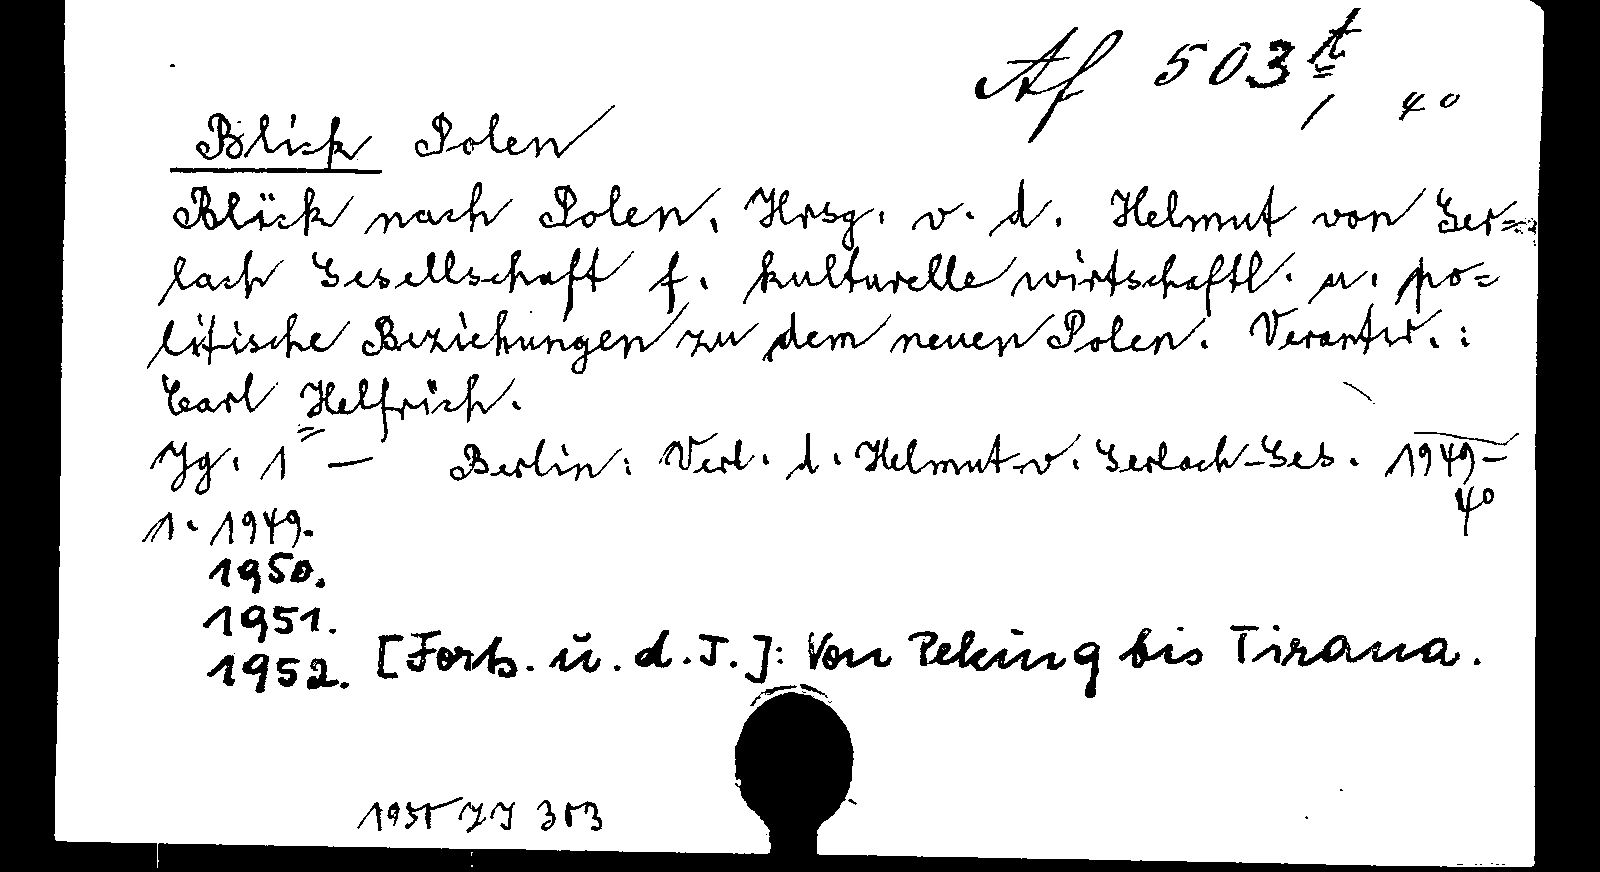 Af 503 t, 4°
Blick Polen
Blick nach Polen. Hrsg. v. d. Helmut von Ger=
lach Gesellschaft f. kulturelle wirtschaftl. u. po=
litische Beziehungen zu dem neuen Polen. Verantw.:
Carl Helfrich.
Jg. 1 — Berlin: Verl. d. Helmut-v. Gerlach-Ges. 1949–
4°
1. 1949.
1950.
1951.
1952. [Forts. u. d. T.]: Von Peking bis Tirana.